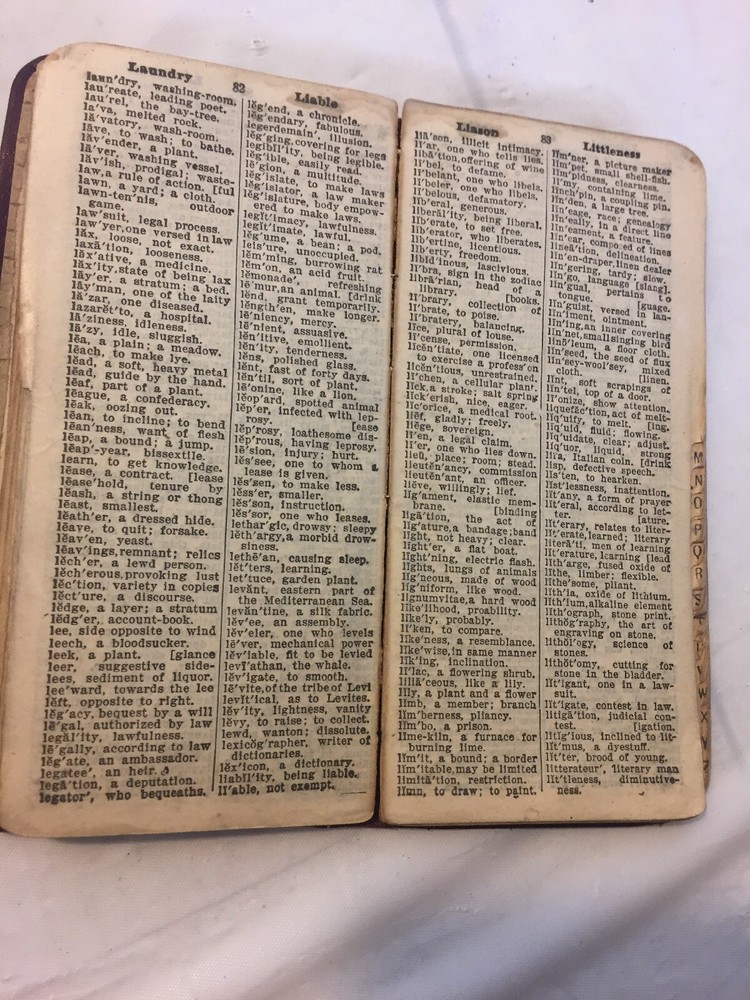 Laundry
82
Liable
laun'dry, washing-room.
lau'reate, leading poet.
lau'rel, the bay-tree.
la'va, melted rock.
lă'vatory, wash-room.
lāve, to wash; to bathe.
lăv'ender, a plant.
lā'ver, washing vessel.
lăv'ish, prodigal; waste-
law, a rule of action. [ful
lawn, a yard; a cloth.
lawn-ten'nis, outdoor
game.
law'suit, legal process.
law'yer, one versed in law
lăx, loose, not exact.
laxā'tion, looseness.
lăx'ative, a medicine.
lăx'ity, state of being lax
lāy'er, a stratum; a bed.
lāy'man, one of the laity
lā'zar, one diseased.
lazarĕt'to, a hospital.
lā'ziness, idleness.
lā'zy, idle, sluggish.
lēa, a plain; a meadow.
lēach, to make lye.
lĕad, a soft, heavy metal
lēad, guide by the hand.
lēaf, part of a plant.
lēague, a confederacy.
lēak, oozing out.
lēan, to incline; to bend
lēan'ness, want of flesh
lēap, a bound; a jump.
lēap'-year, bissextile.
learn, to get knowledge.
lēase, a contract. [lease
lēase'hold, tenure by
lēash, a string or thong
lēast, smallest.
lĕath'er, a dressed hide.
lēave, to quit; forsake.
lĕav'en, yeast.
lēav'ings, remnant; relics
lĕch'er, a lewd person.
lĕch'erous, provoking lust
lĕc'tion, variety in copies
lĕct'ure, a discourse.
lĕdge, a layer; a stratum
lĕdg'er, account-book.
lee, side opposite to wind
leech, a bloodsucker.
leek, a plant. [glance
leer, suggestive side-
lees, sediment of liquor.
lee'ward, towards the lee
lĕft, opposite to right.
lĕg'acy, bequest by a will
lē'gal, authorized by law
legăl'ity, lawfulness.
lē'gally, according to law
lĕg'ate, an ambassador.
legatee', an heir.
legā'tion, a deputation.
legator', who bequeaths.
lĕg'end, a chronicle.
lĕg'endary, fabulous.
legerdemain', illusion.
lĕg'ging, covering for legs
legibĭl'ity, being legible.
lĕg'ible, easily read.
lē'gion, a multitude.
lĕg'islate, to make laws
lĕg'islator, a law maker
lĕg'islature, body empow-
ered to make laws.
legĭt'imacy, lawfulness.
legĭt'imate, lawful.
lĕg'ume, a bean; a pod.
leis'ure, unoccupied.
lĕm'ming, burrowing rat
lĕm'on, an acid fruit.
lĕmonade', refreshing
lē'mur, an animal. [drink
lĕnd, grant temporarily.
lĕngth'en, make longer.
lē'niency, mercy.
lē'nient, assuasive.
lĕn'itive, emollient.
lĕn'ity, tenderness.
lĕns, polished glass.
lĕnt, fast of forty days.
lĕn'til, sort of plant.
lē'onine, like a lion.
lĕop'ard, spotted animal
lĕp'er, infected with lep-
rosy. [ease
lĕp'rosy, loathesome dis-
lĕp'rous, having leprosy.
lē'sion, injury; hurt.
lĕs'see, one to whom a
lease is given.
lĕs'sen, to make less.
lĕss'er, smaller.
lĕs'son, instruction.
lĕs'sor, one who leases.
lethar'gic, drowsy; sleepy
lĕth'argy, a morbid drow-
siness.
lethē'an, causing sleep.
lĕt'ters, learning.
let'tuce, garden plant.
levănt, eastern part of
the Mediterranean Sea.
levăn'tine, a silk fabric.
lĕv'ee, an assembly.
lĕv'eler, one who levels
lē'ver, mechanical power
lĕv'iable, fit to be levied
levī'athan, the whale.
lĕv'igate, to smooth.
lē'vite, of the tribe of Levi
levĭt'ical, as to Levites.
lĕv'ity, lightness, vanity
lĕvy, to raise; to collect.
lewd, wanton; dissolute.
lexicŏg'rapher, writer of
dictionaries.
lĕx'icon, a dictionary.
liabĭl'ity, being liable.
lī'able, not exempt.
Liason
83
Littleness
lĭā'son, illicit intimacy.
lī'ar, one who tells lies.
libā'tion, offering of wine
lī'bel, to defame.
lī'belant, one who libels.
lī'beler, one who libels.
lī'belous, defamatory.
lĭb'eral, generous.
liberăl'ity, being liberal.
lĭb'erate, to set free.
lĭb'erator, who liberates.
lĭb'ertine, licentious.
lĭb'erty, freedom.
libĭd'inous, lascivious.
lī'bra, sign in the zodiac
librā'rian, head of a
library. [books.
lī'brary, collection of
lī'brate, to poise.
lī'bratery, balancing.
līce, plural of louse.
lī'cense, permission.
līcĕn'tiate, one licensed
to exercise a profess'on
līcĕn'tious, unrestrained.
lī'chen, a cellular plant.
lĭck, a stroke; salt spring
lĭck'erish, nice, eager.
lĭc'orice, a medical root.
liēf, gladly; freely.
liēge, sovereign.
lī'en, a legal claim.
lī'er, one who lies down.
lieū, place; room; stead.
lieutĕn'ancy, commission
lieutĕn'ant, an officer.
liēve, willingly; lief.
lĭg'ament, elastic mem-
brane. [binding
ligā'tion, the act of
lĭg'ature, a bandage; band
līght, not heavy; clear.
līght'er, a flat boat.
līght'ning, electric flash.
līghts, lungs of animals
lĭg'neous, made of wood
lĭg'niform, like wood.
lignumvitæ, a hard wood
līke'lihood, proability.
līke'ly, probably.
lī'ken, to compare.
līke'ness, a resemblance.
līke'wise, in same manner
līk'ing, inclination.
lī'lac, a flowering shrub.
liliā'ceous, like a lily.
lĭly, a plant and a flower
lĭmb, a member; branch
lĭm'berness, pliancy.
lĭm'bo, a prison.
līme-kiln, a furnace for
burning lime.
lĭm'it, a bound; a border
lĭm'itable, may be limited
limitā'tion, restriction.
lĭmn, to draw; to paint.
lĭm'ner, a picture maker
lĭm'pet, small shell-fish.
lĭm'pidness, clearness.
līm'y, containing lime.
lĭnch'pin, a coupling pin.
lĭn'den, a large tree.
lĭn'eage, race; genealogy
lĭn'eally, in a direct line
lĭn'eament, a feature.
lĭn'ear, composed of lines
lineā'tion, delineation.
lĭn'en-draper, linen dealer
lĭn'gering, tardy; slow.
lĭn'go, language [slang].
lĭn'gual, pertains to
tongue. [guage.
lĭn'guist, versed in lan-
lĭn'iment, ointment.
līn'ing, an inner covering
lĭn'net, small singing bird
linō'leum, a floor cloth.
lĭn'seed, the seed of flux
lĭn'sey-wool'sey, mixed
cloth. [linen.
lĭnt, soft scrapings of
lĭn'tel, top of a door.
lī'onize, show attention.
liquefăc'tion, act of melt-
lĭq'uify, to melt. [ing.
lĭq'uid, fluid; flowing.
lĭq'uidate, clear; adjust.
lĭq'uor, liquid, strong
lī'ra, Italian coin. [drink
lĭsp, defective speech.
lĭs'ten, to hearken.
lĭst'lessness, inattention.
lĭt'any, a form of prayer
lĭt'eral, according to let-
ter. [ature.
lĭt'erary, relates to liter-
lĭt'erate, learned; literary
literā'ti, men of learning
lĭt'erature, learning [lead
lĭth'arge, fused oxide of
līthe, limber; flexible.
līthe'some, pliant.
lĭth'ia, oxide of lithium.
lĭth'ium, alkaline element
lĭth'ograph, stone print.
lithŏg'raphy, the art of
engraving on stone.
lithŏl'ogy, science of
stones.
lithŏt'omy, cutting for
stone in the bladder.
lĭt'igant, one in a law-
suit.
lĭt'igate, contest in law.
litigā'tion, judicial con-
test. [igation.
litĭg'ious, inclined to lit-
lĭt'mus, a dyestuff.
lĭt'ter, brood of young.
litterateur', literary man
lĭt'tleness, diminutive-
ness.
M
N
O
P
Q
R
S
T
V
W
X